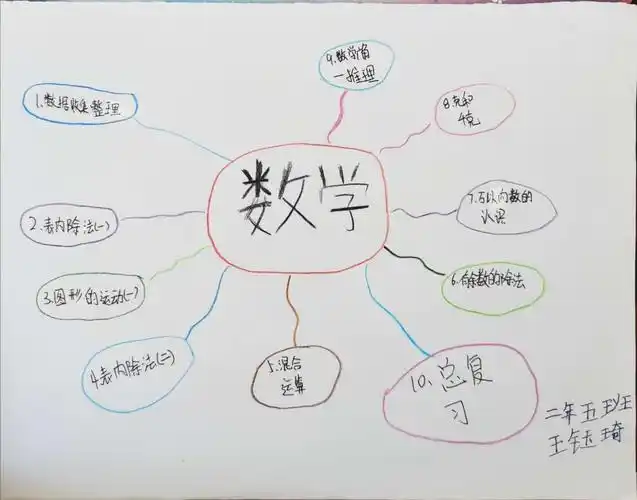 数学
1.数据收集整理
2.表内除法(一)
3.图形的运动(一)
4.表内除法(二)
5.混合
运算
6.有余数的除法
7.万以内数的
认识
8.克和
千克
9.数学广角
一推理
10、总复
习
二年五班
王钰琦